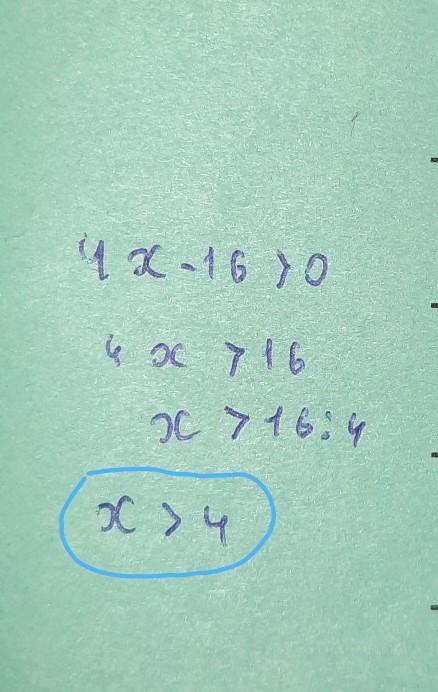 4x-16>0
4x>16
x>16:4
x>4